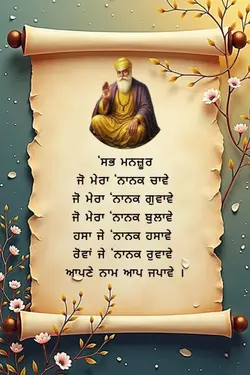 'ਸਭ ਮਨਜ਼ੂਰ
ਜੋ ਮੇਰਾ 'ਨਾਨਕ ਚਾਵੇ
ਜੋ ਮੇਰਾ 'ਨਾਨਕ ਗੁਵਾਵੇ
ਜੋ ਮੇਰਾ 'ਨਾਨਕ ਬੁਲਾਵੇ
ਹਸਾ ਜੇ 'ਨਾਨਕ ਹਸਾਵੇ
ਰੋਵਾਂ ਜੇ 'ਨਾਨਕ ਰੁਵਾਵੇ
ਆਪਣੇ ਨਾਮ ਆਪ ਜਪਾਵੇ ।